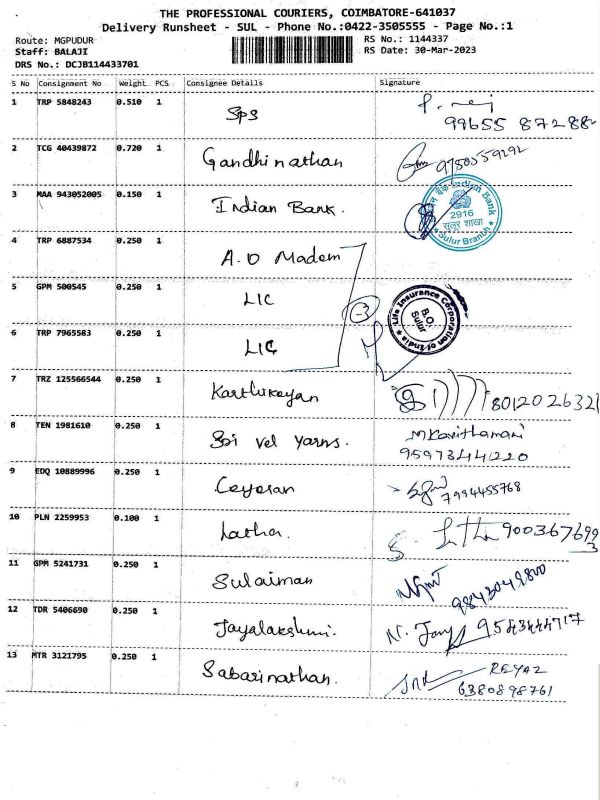 THE PROFESSIONAL COURIERS, COIMBATORE-641037
Delivery Runsheet - SUL - Phone No.:0422-3505555 - Page No.:1
Route: MGPUDUR RS No.: 1144337
Staff: BALAJI RS Date: 30-Mar-2023
DRS No.: DCJB114433701
S No Consignment No Weight PCS Consignee Details Signature
1 TRP 5848243 0.510 1 SPS
99655 87288
2 TCG 40439872 0.720 1 Gandhinathan 9750559292
3 MAA 943052005 0.150 1 Indian Bank.
Indian Bank
2916
सूलूर शाखा
Sulur Branch
4 TRP 6887534 0.250 1 A.D Madem
5 GPM 500545 0.250 1 LIC 3
Life Insurance Corporation of India
B.O.
Sulur
6 TRP 7965583 0.250 1 LIC
7 TRZ 125566544 0.250 1 Karthikeyan 8012026321
8 TEN 1981610 0.250 1 Sri vel yarns. M Kavithamani
9597344220
9 EDQ 10889996 0.250 1 7994455768
10 PLN 2259953 0.100 1 Latha. 9003676993
11 GPM 5241731 0.250 1 Sulaiman 9843049800
12 TDR 5406690 0.250 1 Jayalakshmi. N. Jay 9584344717
13 MTR 3121795 0.250 1 Sabarinathan. REYAZ
6380898761